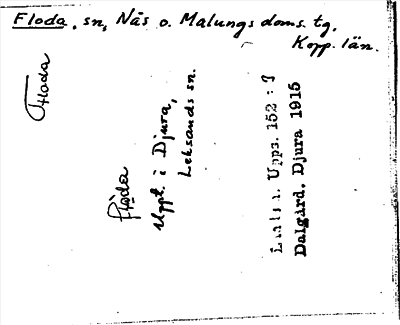 Floda, sn, Nås o. Malungs doms. tg.
Kopp. län.
Floda
Flòda
Uppt. i Djura,
Leksands sn.
Upps. 152 : 7
Dalgård. Djura 1915